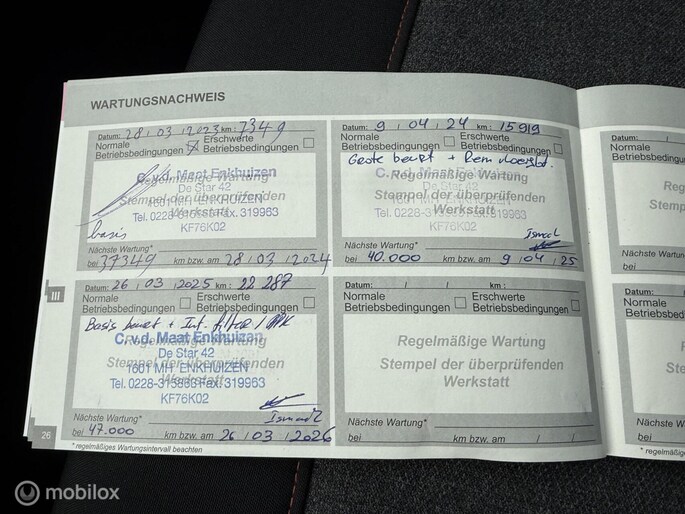 WARTUNGSNACHWEIS
Datum: 28 / 03 / 2023 km: 7349
Normale Betriebsbedingungen
Erschwerte Betriebsbedingungen
Regelmäßige Wartung
C.v.d. Maat Enkhuizen
De Star 42
Stempel der überprüfenden
1601 MH ENKHUIZEN
Werkstatt
Tel. 0228-315686 Fax. 319963
KF76K02
basis
Nächste Wartung*
bei 37349 km bzw. am 28 / 03 / 2024
Datum: 9 / 04 / 24 km: 15919
Normale Betriebsbedingungen
Erschwerte Betriebsbedingungen
Grote beurt + Rem vloeist.
Regelmäßige Wartung
C.v.d. Maat Enkhuizen
De Star 42
Stempel der überprüfenden
1601 MH ENKHUIZEN
Tel. 0228-315686 Fax. 319963
Werkstatt
KF76K02
Ismael
Nächste Wartung*
bei 40.000 km bzw. am 9 / 04 / 25
Datum: /
Normale
Betriebsb
Regelm
Stempe
Nächste W
bei
III
Datum: 26 / 03 / 2025 km: 22 287
Normale Betriebsbedingungen
Erschwerte Betriebsbedingungen
Basis beurt + Int. filter / APK
C.v.d. Maat Enkhuizen
Regelmäßige Wartung
De Star 42
Stempel der überprüfenden
1601 MH ENKHUIZEN
Werkstatt
Tel. 0228-315686 Fax. 319963
KF76K02
Ismael
Nächste Wartung*
bei 47.000 km bzw. am 26 / 03 / 2026
Datum: / / km:
Normale Betriebsbedingungen
Erschwerte Betriebsbedingungen
Regelmäßige Wartung
Stempel der überprüfenden
Werkstatt
Nächste Wartung*
bei km bzw. am / /
Datum:
Normale
Betriebsb
Reg
Stemp
Nächste
bei
26
* regelmäßiges Wartungsintervall beachten
* regelmäßig
mobilox